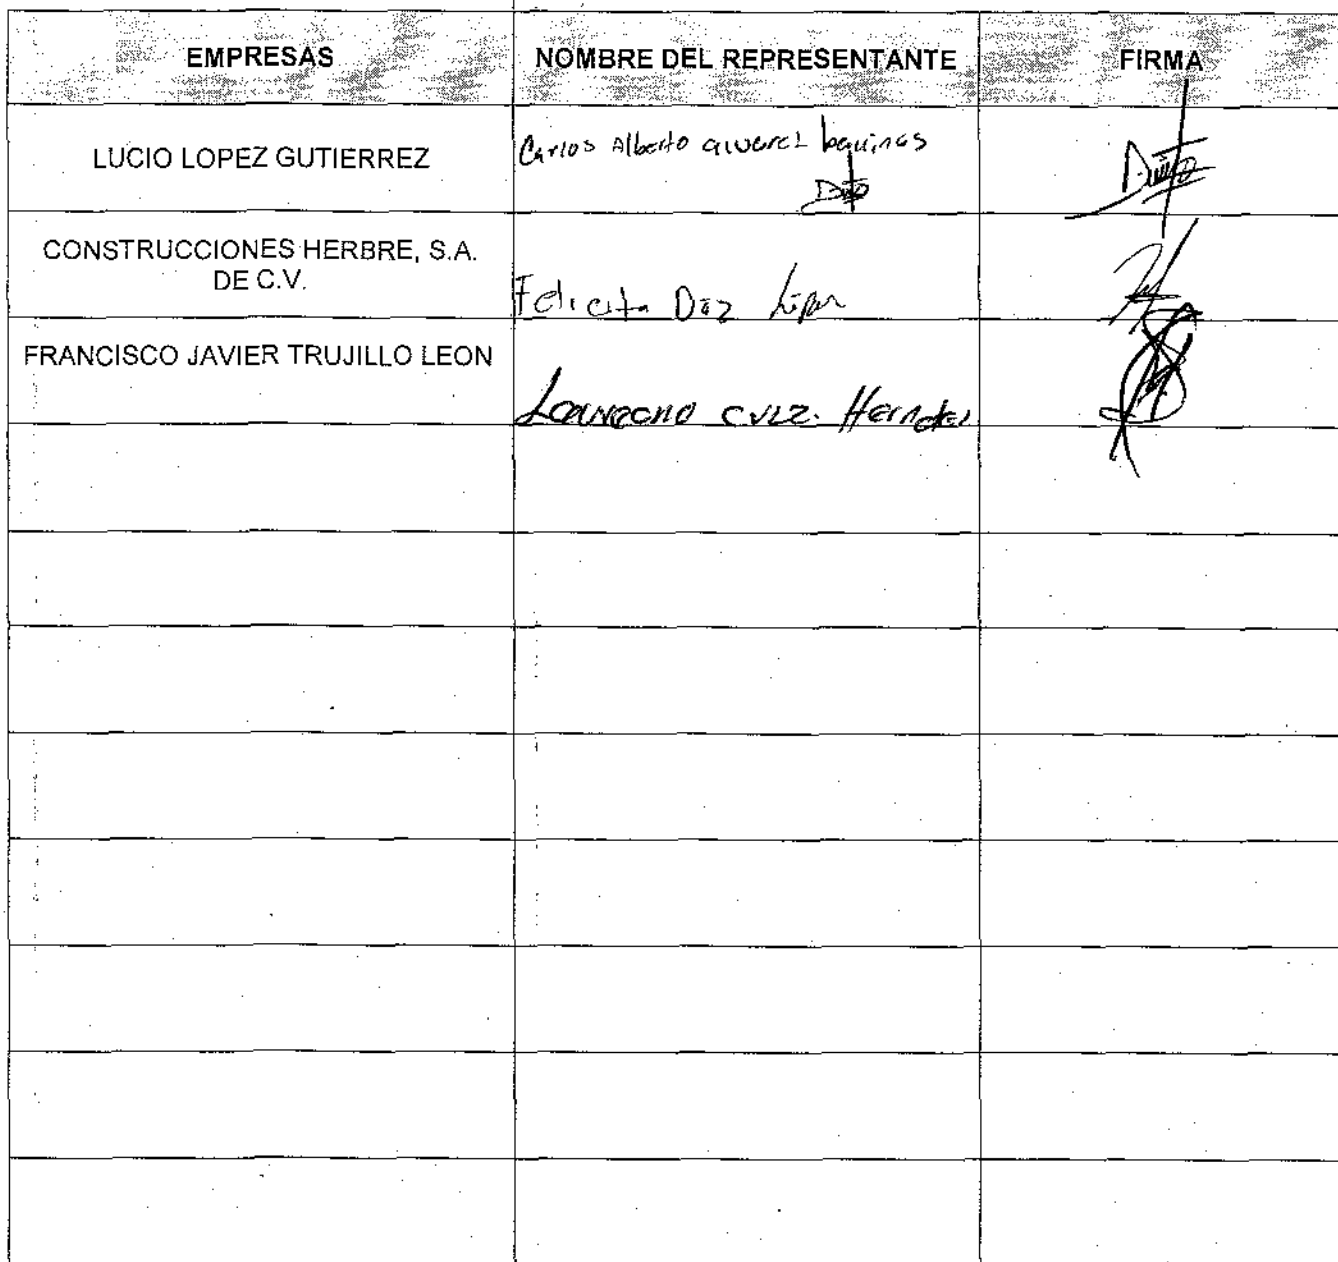 EMPRESAS NOMBRE DEL REPRESENTANTE FIRMA
LUCIO LOPEZ GUTIERREZ Carlos Alberto
CONSTRUCCIONES HERBRE, S.A.
DE C.V.
Felicita Díaz López
FRANCISCO JAVIER TRUJILLO LEON
Laureano cruz. Herndez